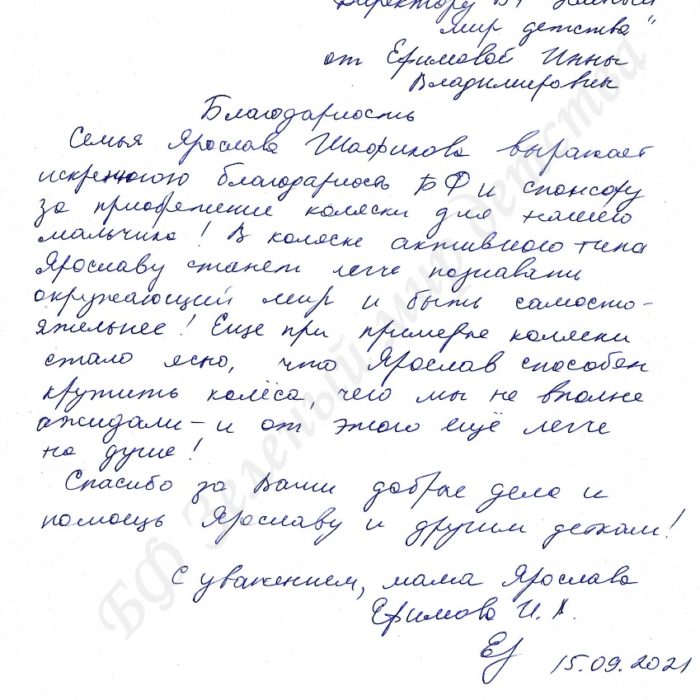 Директору БФ "Зелёный
мир детства"
от Ефимовой Инны
Владимировны
Благодарность
Семья Ярослава Шафикова выражает
искреннюю благодарность БФ и спонсору
за приобретение коляски для нашего
мальчика! В коляске активного типа
Ярославу станет легче познавать
окружающий мир и быть самосто-
ятельнее! Еще при примерке коляски
стало ясно, что Ярослав способен
крутить колёса, чего мы не вполне
ожидали – и от этого ещё легче
на душе!
Спасибо за Ваши добрые дела и
помощь Ярославу и другим деткам!
С уважением, мама Ярослава
Ефимова И.
15.09.2021
БФ Зеленый мир детства